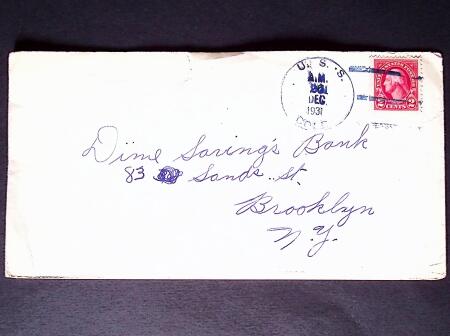 U. S. S.
A.M.
DEC.
1931
COLE
2 CENTS 2
Dime Saving's Bank
83 Sands St.
Brooklyn
N.Y.